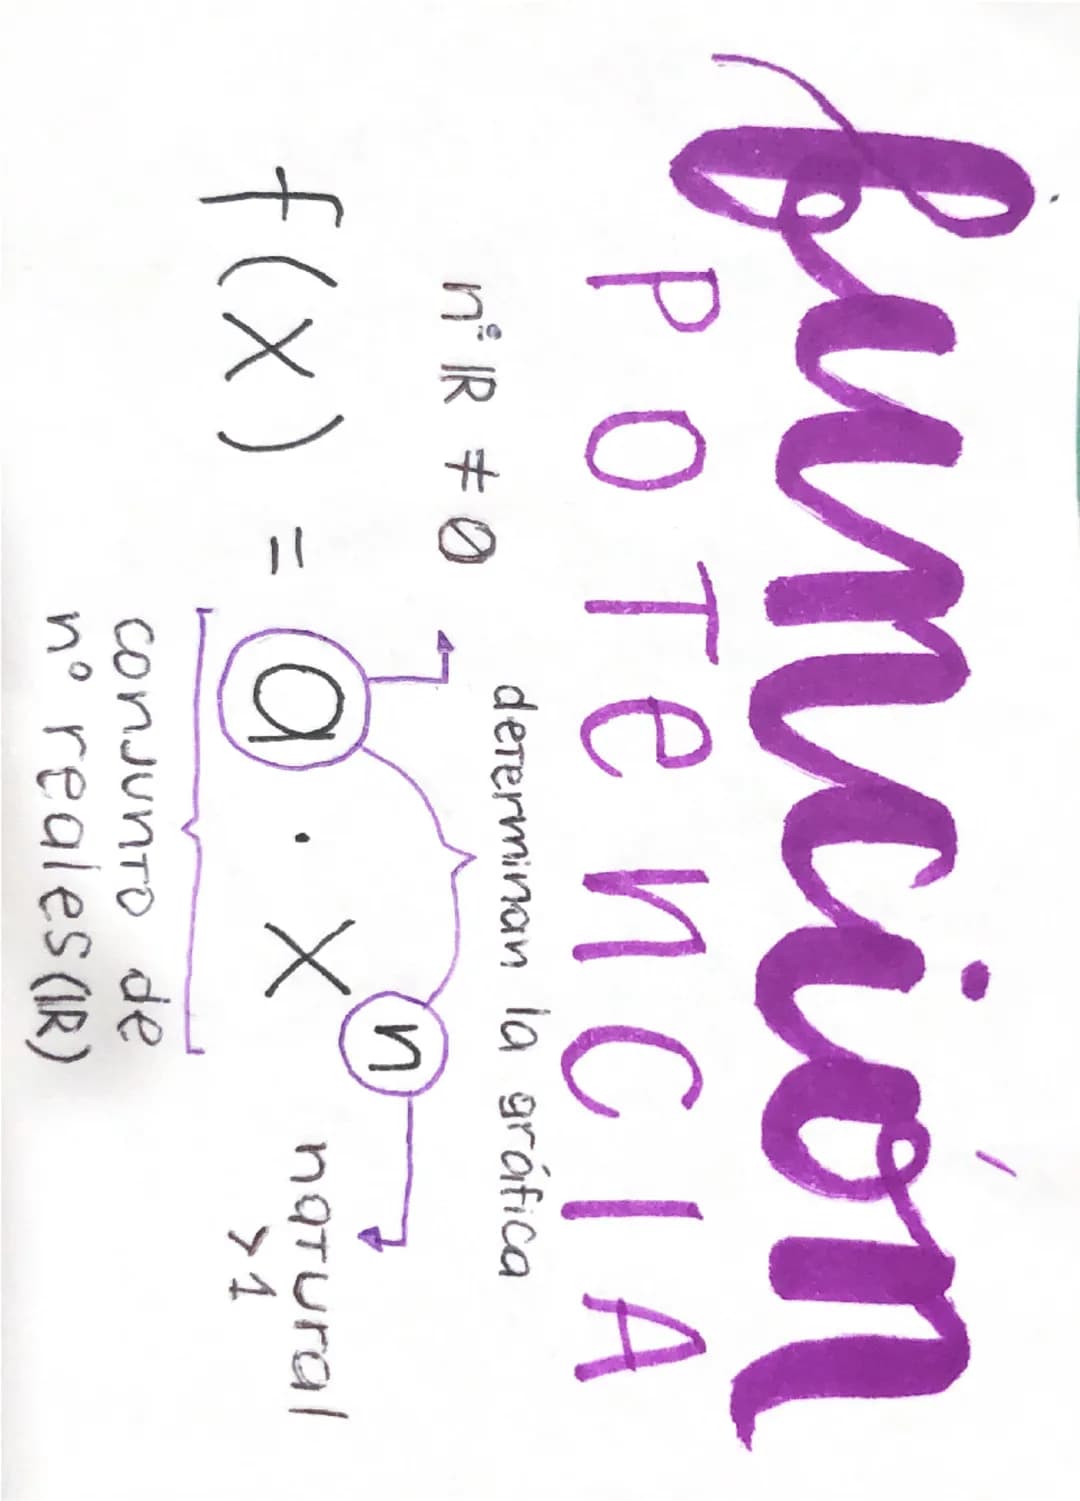 función
POTeNCIA
determinan la gráfica
n° ℝ ≠ 0
f(x) = a · x^n
natural
>1
conjunto de
n° reales (ℝ)